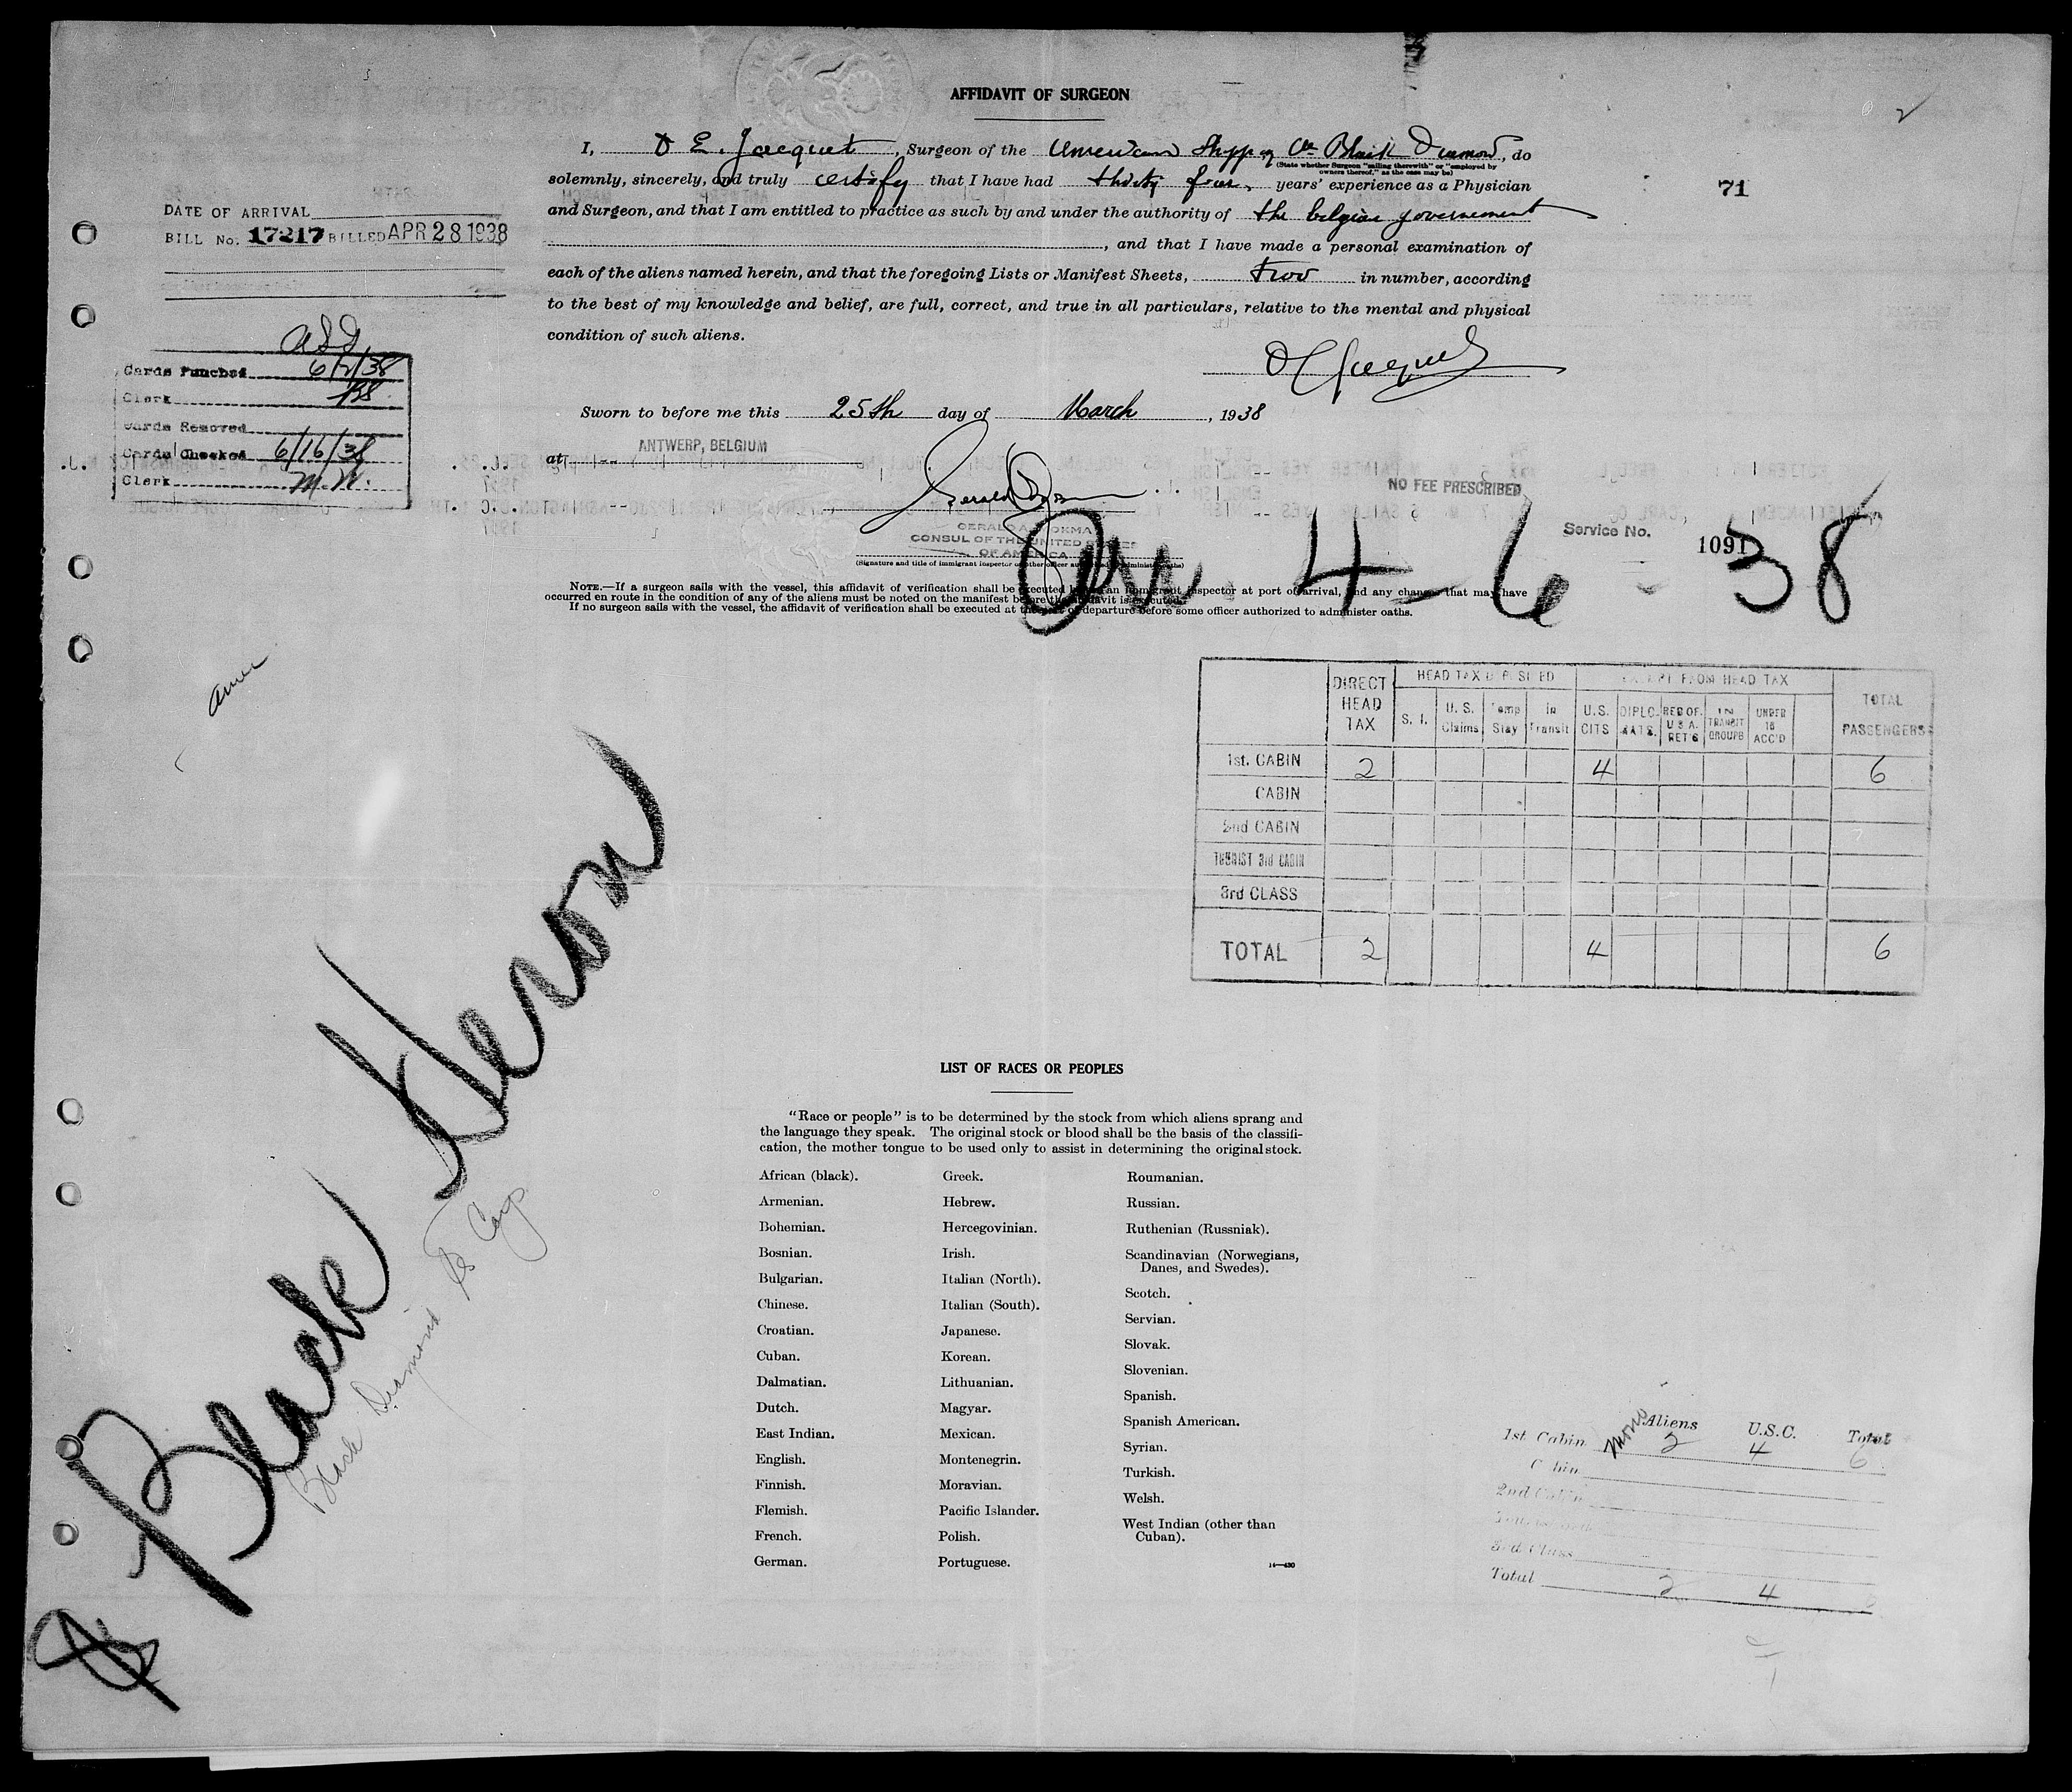 AFFIDAVIT OF SURGEON
2
I, D E. Jacquet, Surgeon of the American Shipping Black Diamond, do
(State whether Surgeon "sailing therewith" or "employed by
owners thereof," as the case may be)
solemnly, sincerely, and truly certify that I have had thirty four years' experience as a Physician
71
and Surgeon, and that I am entitled to practice as such by and under the authority of the belgian governement
, and that I have made a personal examination of
each of the aliens named herein, and that the foregoing Lists or Manifest Sheets, two in number, according
to the best of my knowledge and belief, are full, correct, and true in all particulars, relative to the mental and physical
condition of such aliens.
DATE OF ARRIVAL
BILL No. 17217 BILLED APR 28 1938
Cards Punched 6/2/38
Clerk
Cards Removed
Cards Checked 6/16/38
Clerk M.W.
Sworn to before me this 25th day of March, 1938
at ANTWERP, BELGIUM
NO FEE PRESCRIBED
CONSUL OF THE UNITED STATES
OF AMERICA
(Signature and title of immigrant inspector or other officer authorized to administer oaths)
Service No. 1091
Arr. 4-6-38
NOTE.—If a surgeon sails with the vessel, this affidavit of verification shall be executed before an immigrant inspector at port of arrival, and any change that may have
occurred en route in the condition of any of the aliens must be noted on the manifest before the affidavit is executed.
If no surgeon sails with the vessel, the affidavit of verification shall be executed at the port of departure before some officer authorized to administer oaths.
Amer
DIRECT HEAD TAX
HEAD TAX DEPOSITED
EXEMPT FROM HEAD TAX
TOTAL PASSENGERS
S. I.
U. S. Claims
Temp Stay
In Transit
U.S. CITS
DIPLO- MATS.
RES OF. U S A. RET'G
IN TRANSIT GROUPS
UNDER 16 ACC'D
1st. CABIN 2 4 6
CABIN
2nd CABIN
TOURIST 3rd CABIN
3rd CLASS
TOTAL 2 4 6
Black Heron
Black Diamond SS Corp
LIST OF RACES OR PEOPLES
"Race or people" is to be determined by the stock from which aliens sprang and
the language they speak. The original stock or blood shall be the basis of the classifi-
cation, the mother tongue to be used only to assist in determining the original stock.
African (black).
Armenian.
Bohemian.
Bosnian.
Bulgarian.
Chinese.
Croatian.
Cuban.
Dalmatian.
Dutch.
East Indian.
English.
Finnish.
Flemish.
French.
German.
Greek.
Hebrew.
Hercegovinian.
Irish.
Italian (North).
Italian (South).
Japanese.
Korean.
Lithuanian.
Magyar.
Mexican.
Montenegrin.
Moravian.
Pacific Islander.
Polish.
Portuguese.
Roumanian.
Russian.
Ruthenian (Russniak).
Scandinavian (Norwegians,
Danes, and Swedes).
Scotch.
Servian.
Slovak.
Slovenian.
Spanish.
Spanish American.
Syrian.
Turkish.
Welsh.
West Indian (other than
Cuban).
14—430
Aliens U.S.C. Total
1st. Cabin 2 4 6
Cabin
2nd Cabin
3rd Class
Total 2 4